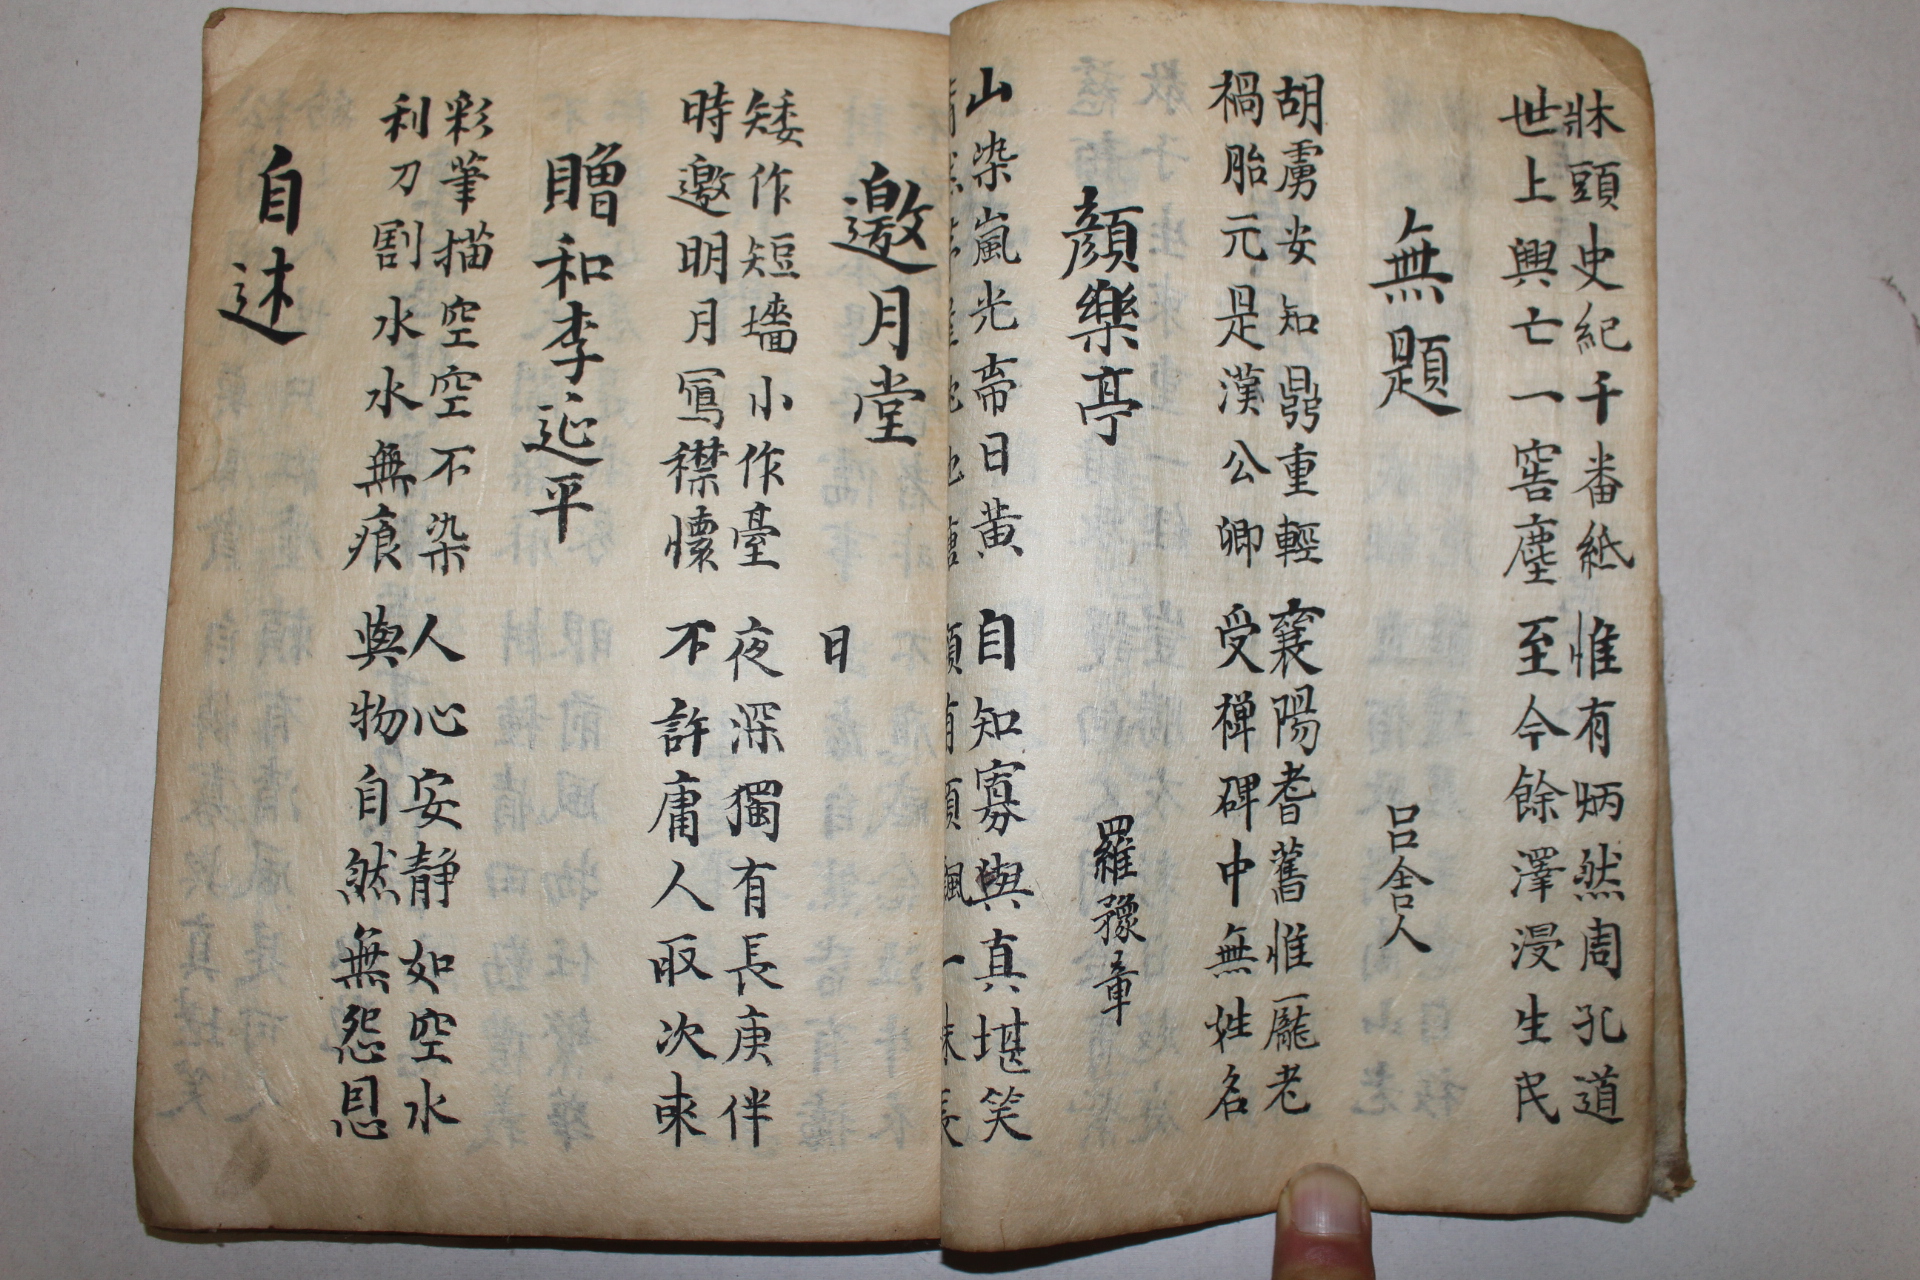 牀頭史紀千番紙 惟有炳然周孔道
世上興亡一窖塵 至今餘澤浸生民
無題 呂舍人
胡虜安知鼎重輕 襄陽耆舊惟龐老
禍胎元是漢公卿 受禪碑中無姓名
顔樂亭 羅豫章
山染嵐光帶日黃 自知寡與真堪笑
邀月堂 日
矮作短墻小作臺 夜深獨有長庚伴
時邀明月寫襟懷 不許庸人取次來
贈和李延平
彩筆描空空不染 人心安靜如空水
利刀割水水無痕 與物自然無怨恩
自述